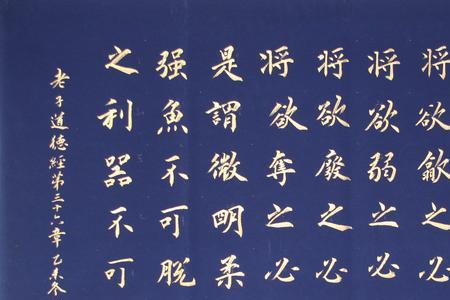 将欲歙之必
将欲弱之必
将欲廢之必
将欲奪之必
是謂微明柔
强魚不可脱
之利器不可
老子道德經第三十六章乙未冬